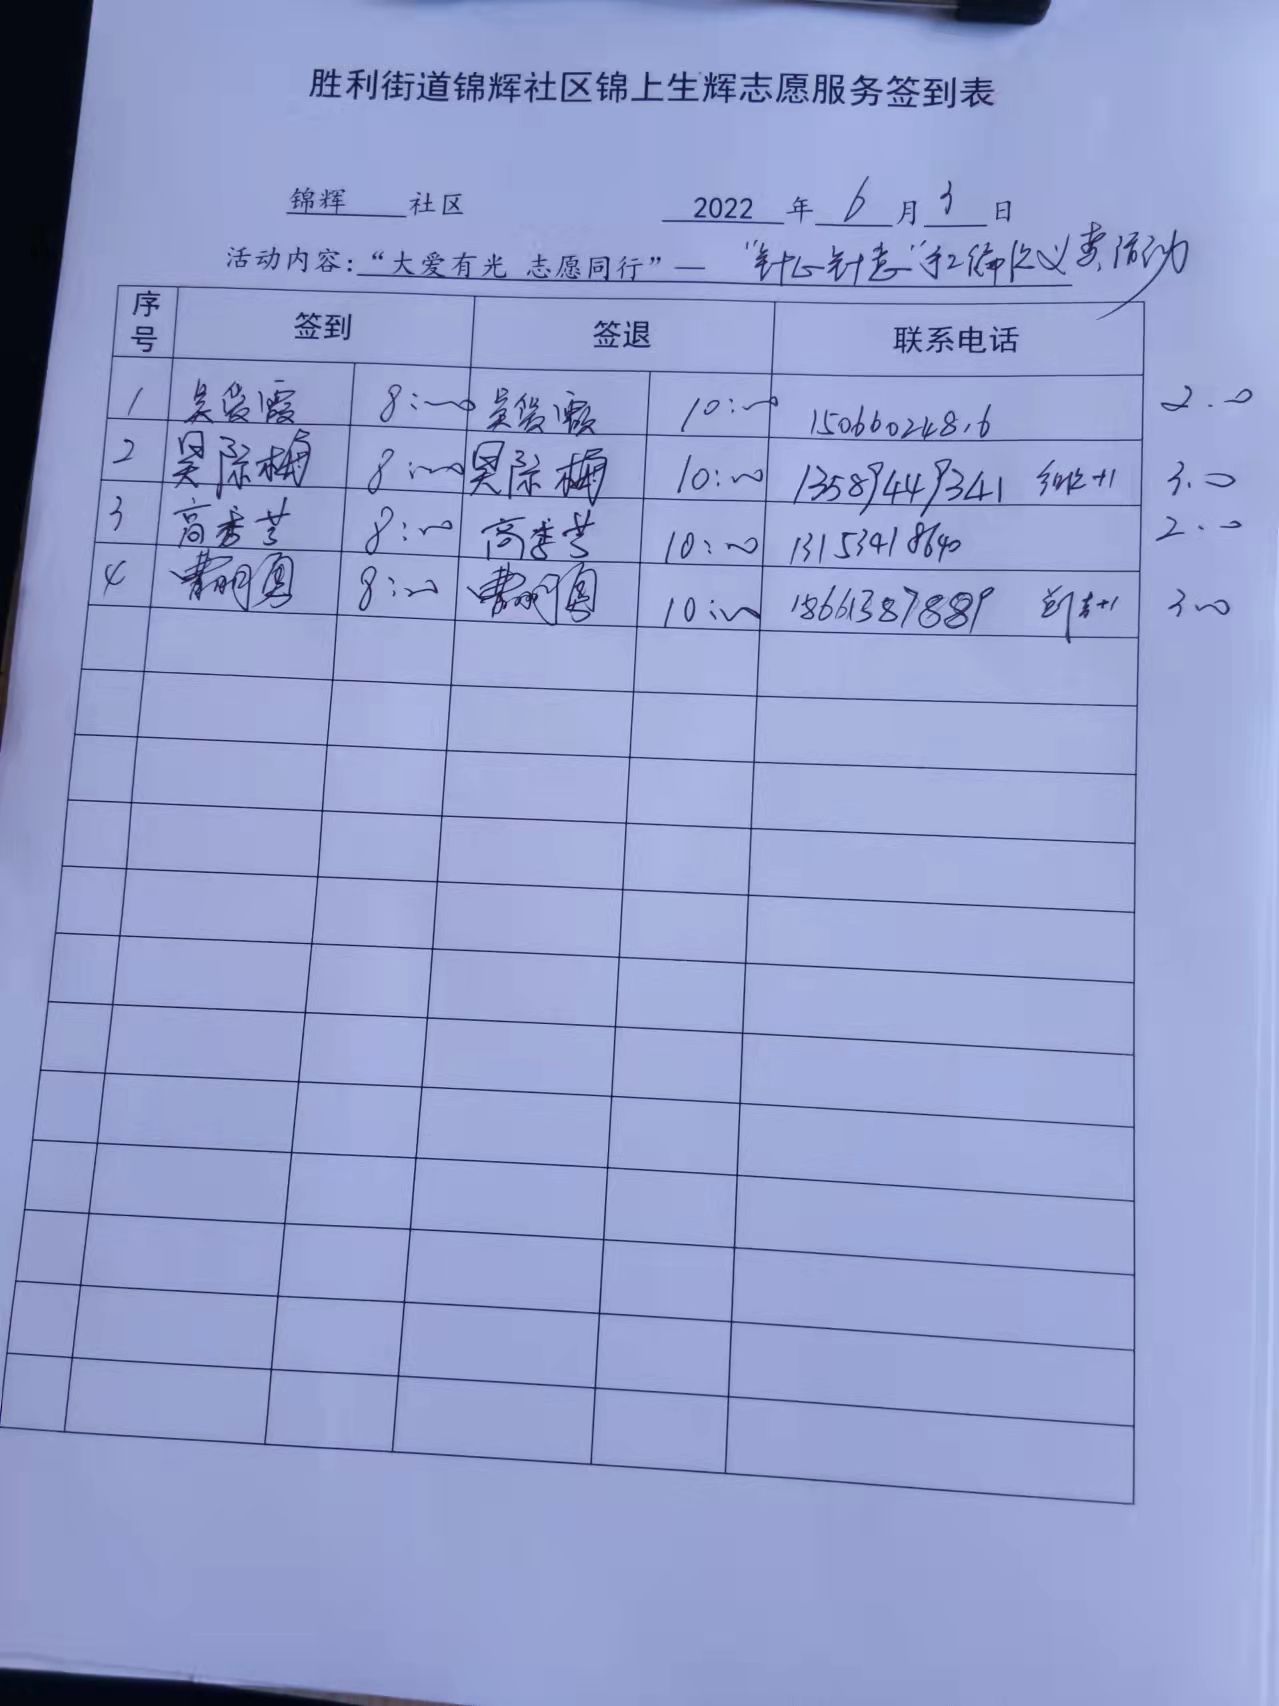 胜利街道锦辉社区锦上生辉志愿服务签到表
锦辉 社区 2022 年 6 月 3 日
活动内容：“大爱有光 志愿同行”— “针心针意”义卖活动
序号 签到 签退 联系电话
1 吴俊霞 8:00 吴俊霞 10:00 2.0
2 吴际梅 8:00 吴际梅 10:00 13589449341 +1 3.0
3 高秀芝 8:00 高秀芝 10:00 13153418640 2.0
4 曹明勇 8:00 曹明勇 10:00 18661387889 +1 3.0